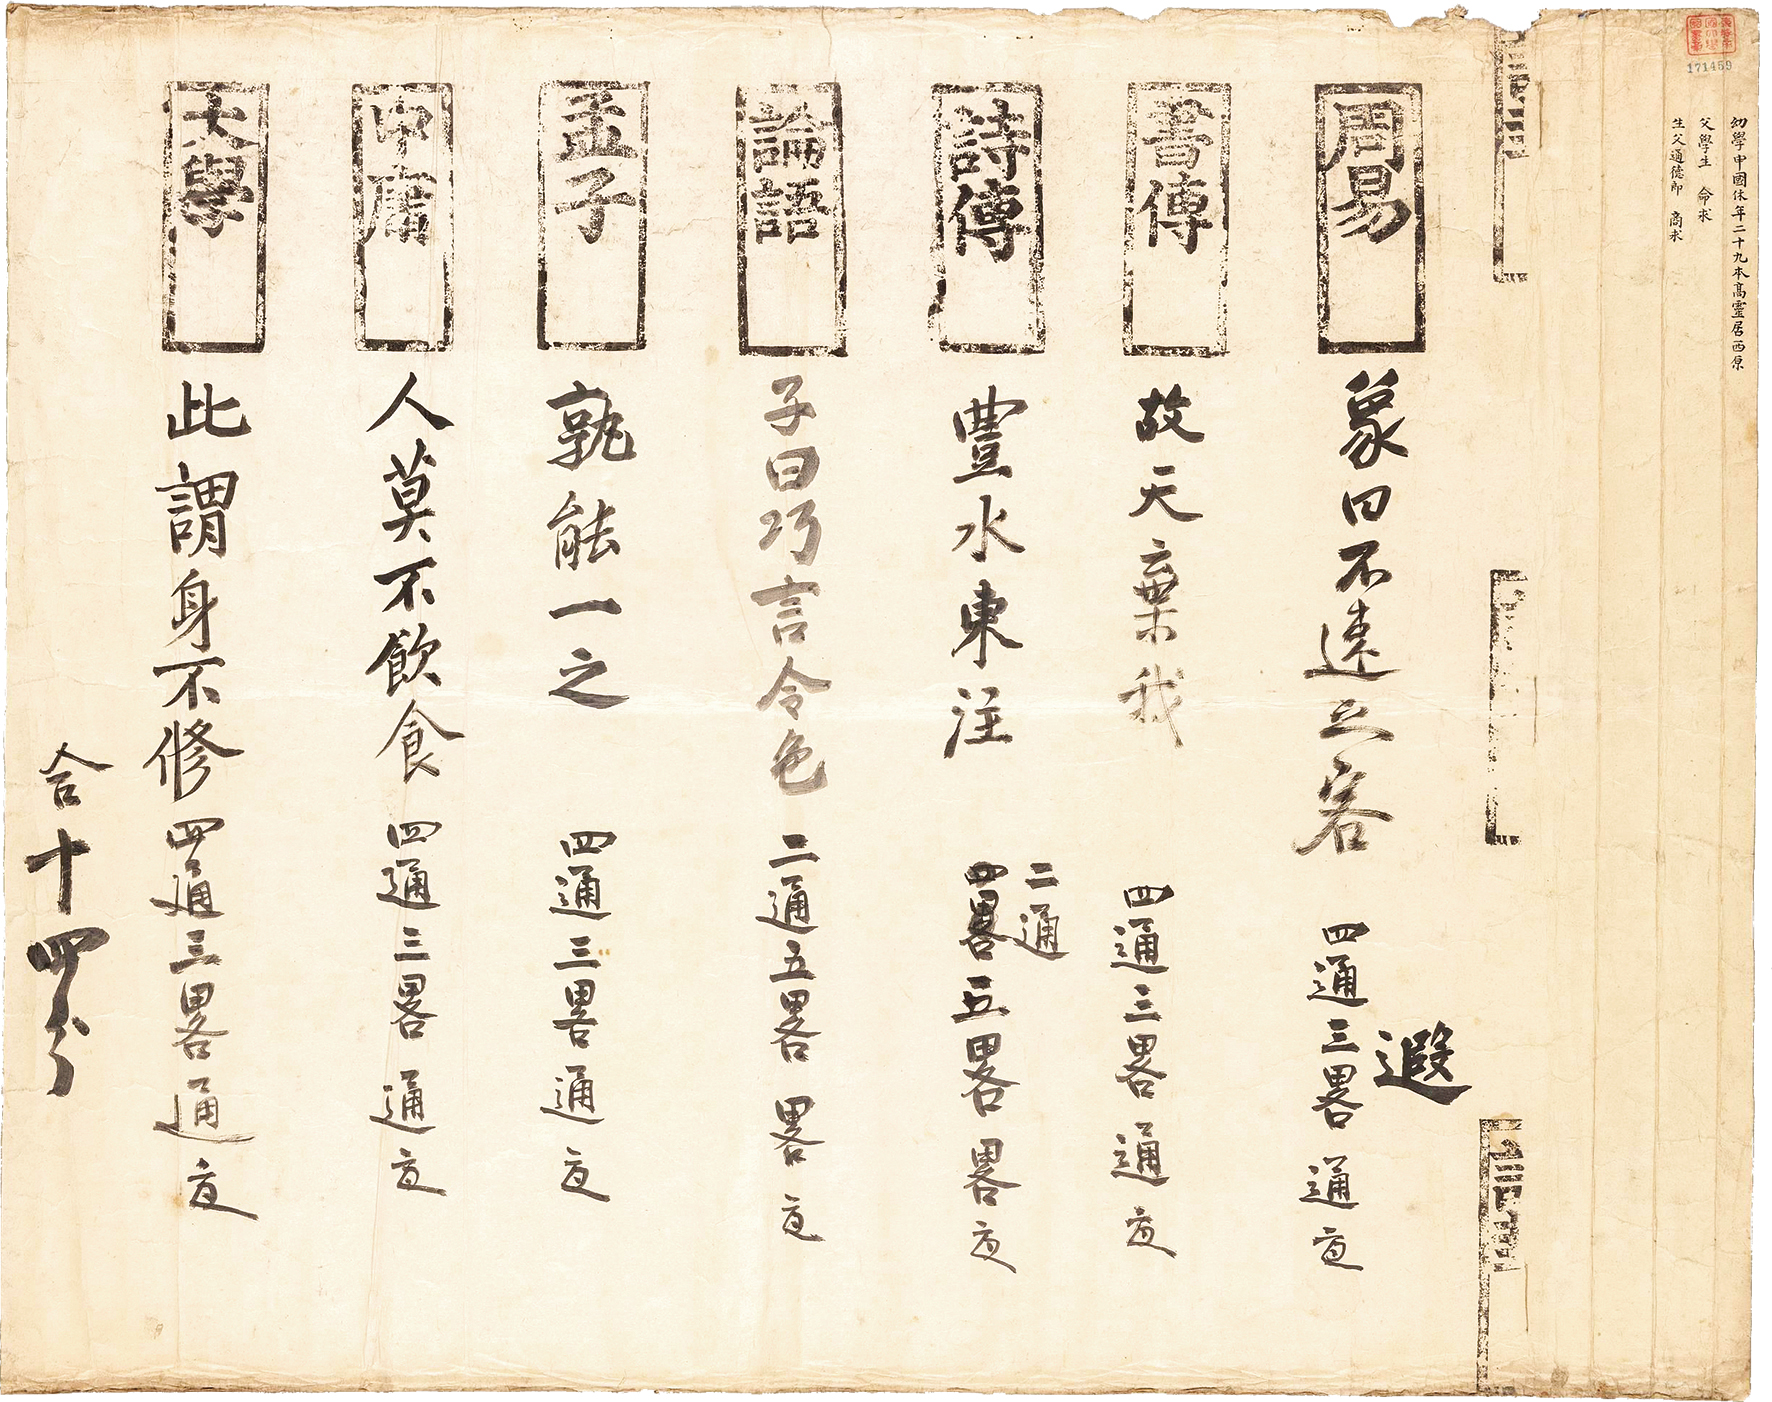 171459
幼學申國休年二十九本高靈居西原
父學生 命求
生父通德郎 商求
遐
周易 象曰不速之客 四通三畧 通
書傳 故天棄我 四通三畧 通
詩傳 豐水東注 二通五畧 畧
論語 子曰巧言令色 二通五畧 畧
孟子 孰能一之 四通三畧 通
中庸 人莫不飲食 四通三畧 通
大學 此謂身不修 四通三畧 通
合十四分